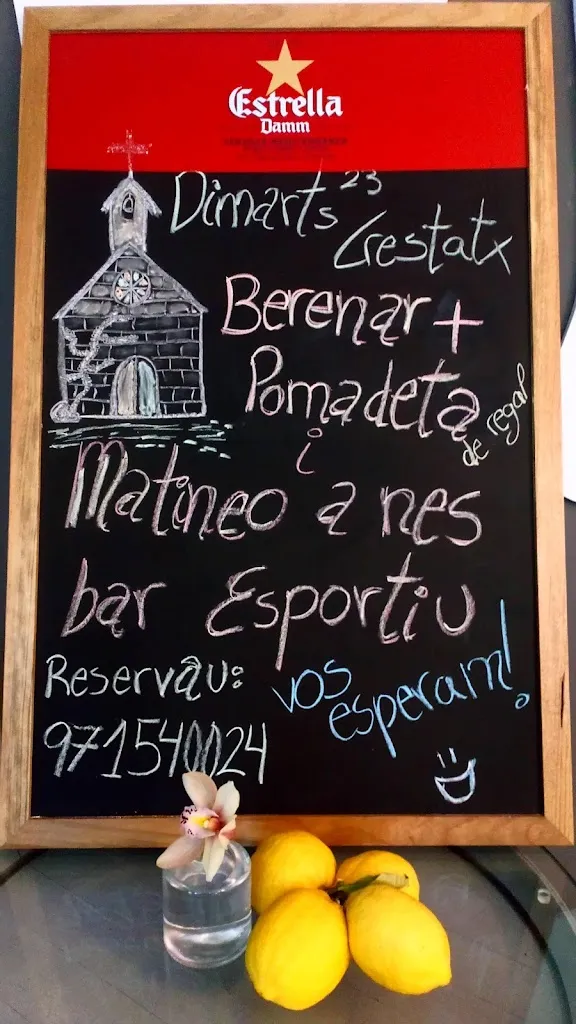 Estrella
Damm
Dimarts 23
Crestatx
Berenar +
Pomadeta
de regal
i
Matineo a nes
bar Esportiu
Reservau:
971540024
vos
esperam!